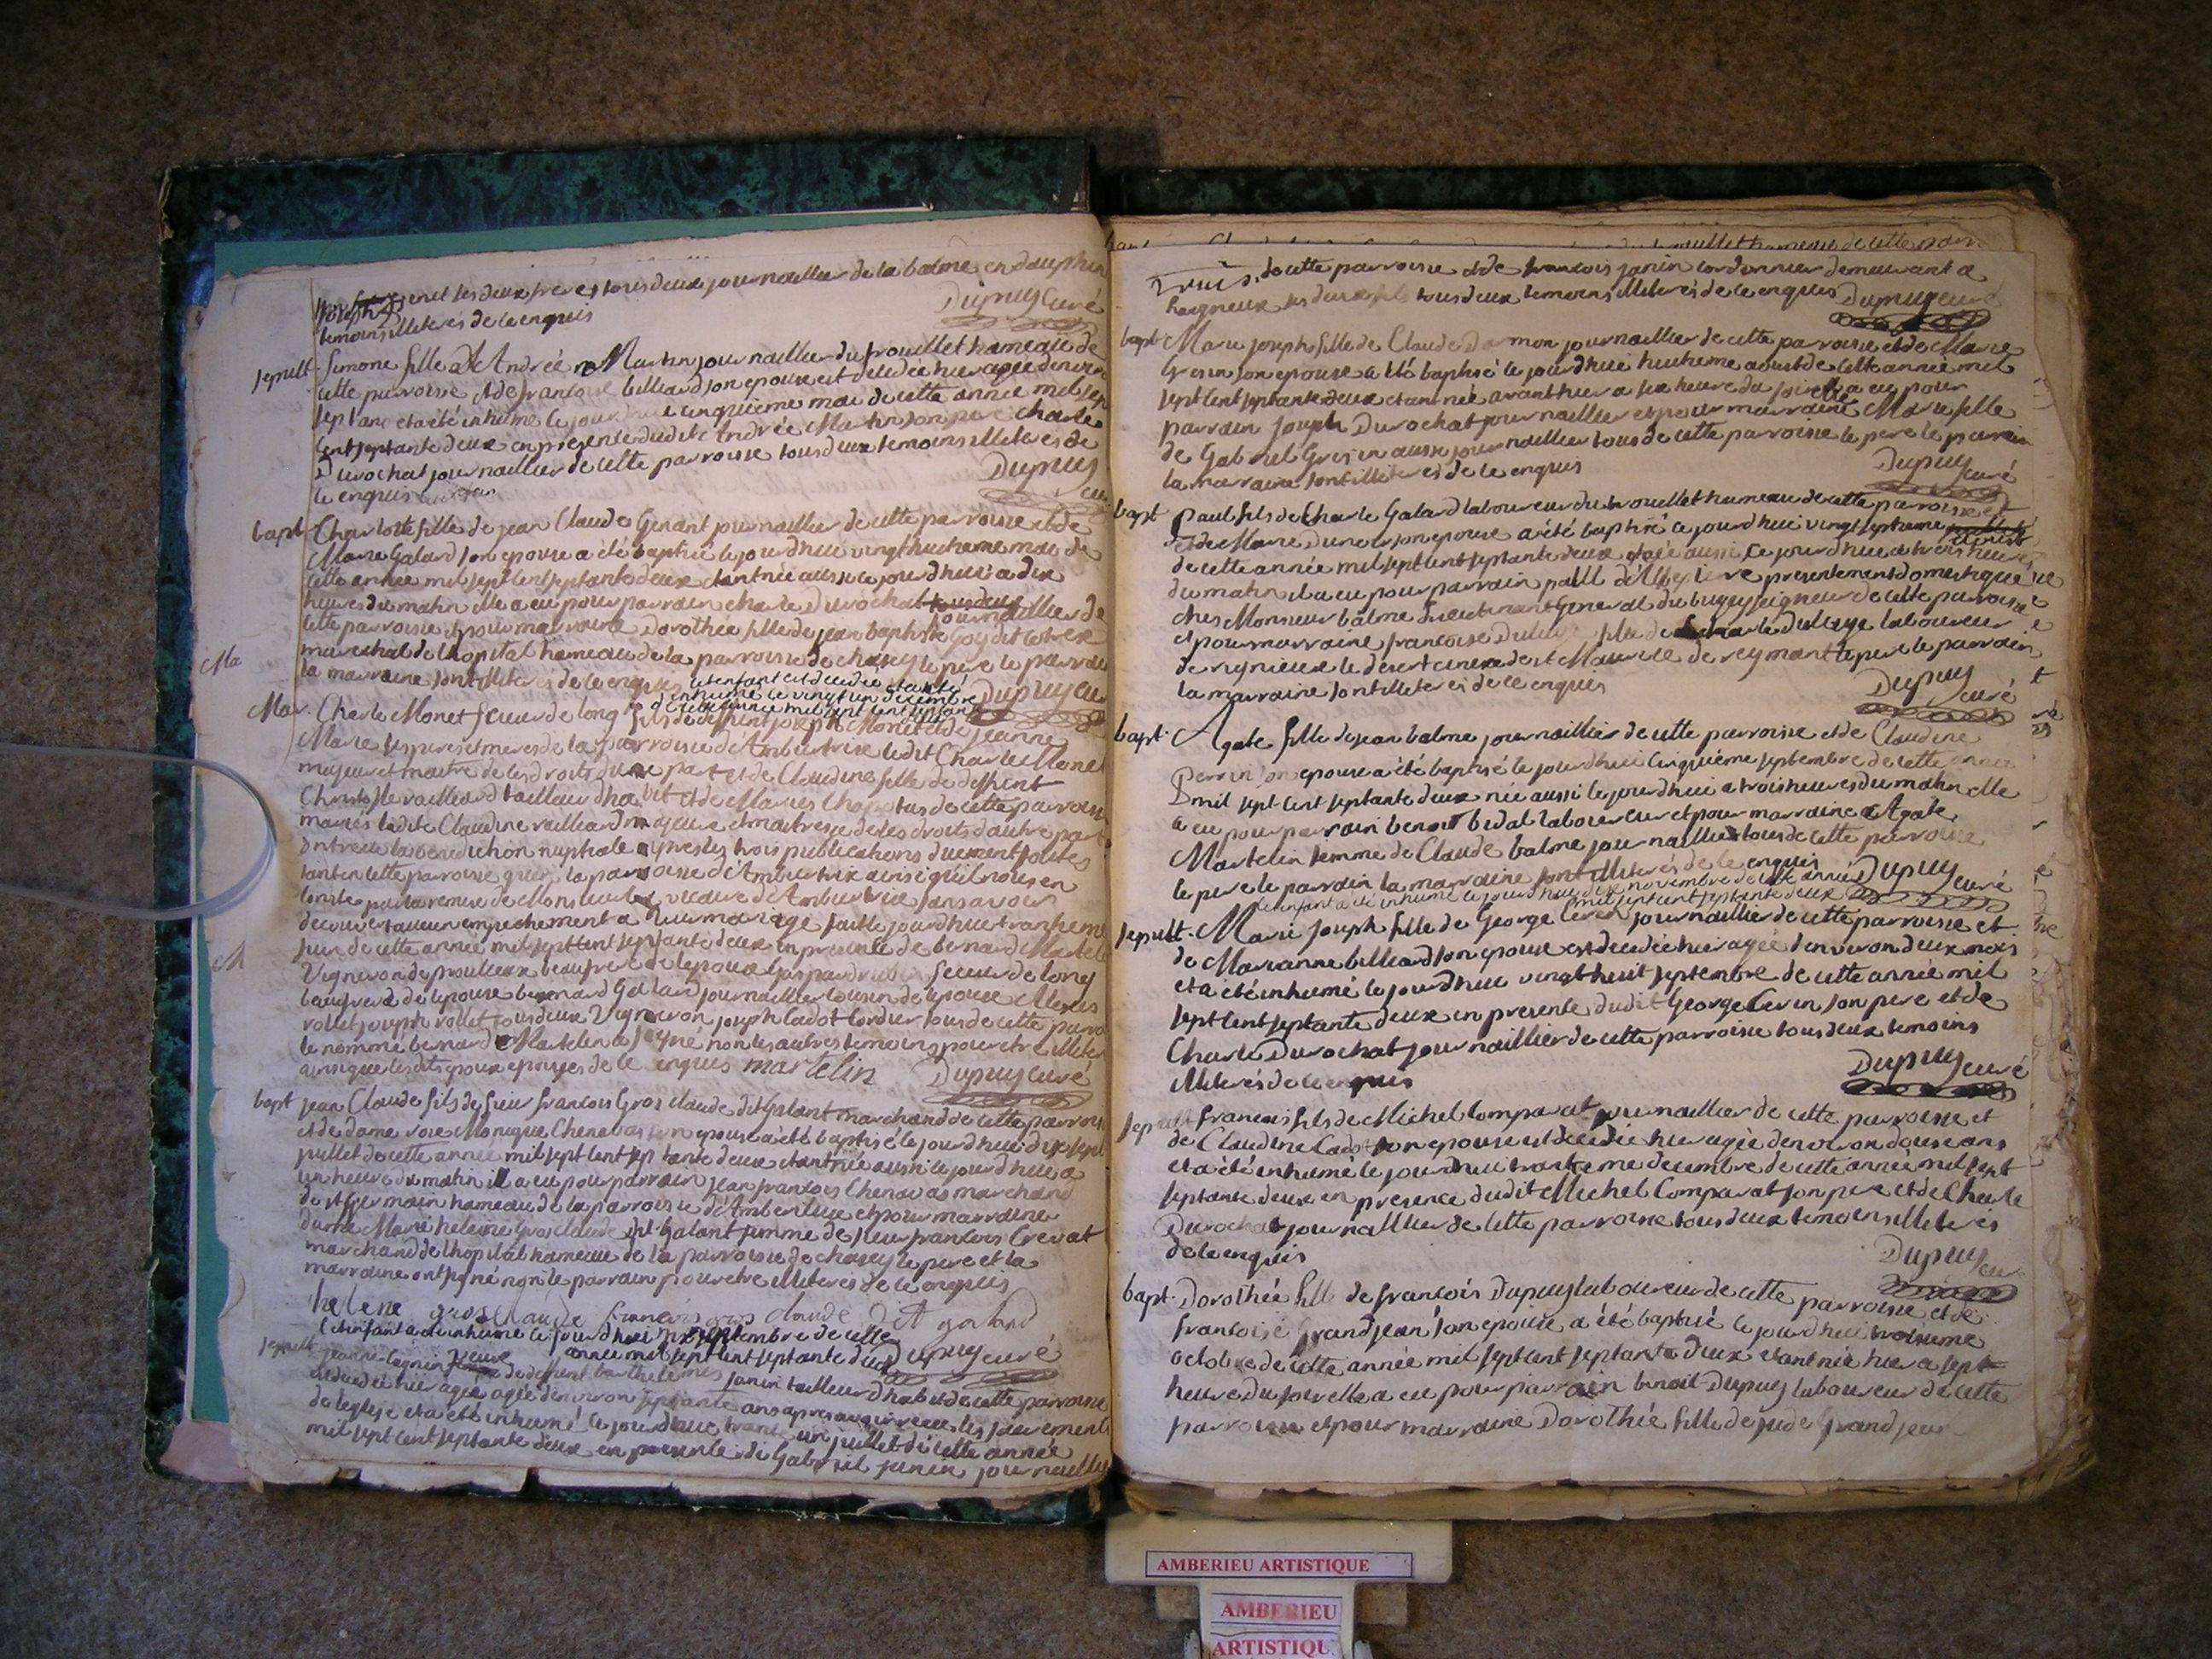 les deux freres tous deux journaillier de la balme en dauphin
temoins illiterés de ce enquis
Dupuy curé
sepult. Simone fille d'Andrée Martin journaillier du trouillet hameau de
cette parroisse et de francoise billiard son epouse est decedée hier agée d'environ
sept ans et a été inhumé ce jourdhui cinquieme mai de cette année mil sept
cent septante deux en presence dudit Andrée Martin son pere charle
Durochat journaillier de cette parroisse tous deux temoins illiterés de
ce enquis
Dupuy
cu
bapt. Charlotte fille de jean Claude Genant journaillier de cette parroisse et de
Marie Galard son epouse a été baptisé ce jourdhui vingthuitieme mai de
cette année mil sept cent septante deux etant née aussi ce jourdhui a dix
heures du matin elle a eu pour parrain charle Durochat journaillier de
cette parroisse et pour marraine Dorothée fille de jean baptiste Goy dit
marechal de l'hopital hameau de la parroisse de chasey le pere le parrain
la marraine sont illiterés de ce enquis
cet enfant est decedée et a été
inhumé ce vingt un decembre
de cette année mil sept cent septante
Dupuy cu
Ma
Mar. Charle Monet scieur de long fils de deffunt joseph Monet et de jeanne
Marie ses peres et meres de la parroisse d'Ambutrix ledit Charle Monet
majeur et maitre de ses droits d'une part et de Claudine fille de deffent
Christofle vailliard tailleur d'habit et de Maries de cette parroisse
mariés ladite Claudine vailliard majeure et maitresse de ses droits d'autre part
ont recu la benediction nuptiale apres les trois publications duement faites
tant en cette parroisse que la parroisse d'Ambutrix ainsi qu'il nous en
conste par la remise de Monsieur le vicaire d'Ambutrix sans avoir
decouvert aucun empechement a leur mariage faitte jourdhui
juin de cette année mil sept cent septante deux en presence de bernard Martelin
Vigneron de proulieux beaufrere de l'epoux Gaspard scieur de long
beaufrere de l'epouse bernard Galard journaillier cousin de l'epouse Alexis
rollet joseph rollet tous deux Vigneron joseph Cadot cordier tous de cette parro
le nommé bernard Martelin a signé non les autres temoins pour etre illiter
ainsi que lesdits epoux epouses de ce enquis martelin Dupuy curé
bapt jean Claude fils de sieur francois Gros claude dit Galant marchand de cette parroisse
et de dame rose Monique Chenavas son epouse a été baptisé ce jourdhui dix sept
juillet de cette année mil sept cent septante deux etant née aussi ce jourdhui a
un heure du matin il a eu pour parrain jean francois Chenavas marchand
de st Germain hameau de la parroisse d'Amberieux et pour marraine
dame Marie helene Gros claude dit Galant femme de sieur francois Crevat
marchand de l'hopital hameau de la parroisse de chasey le pere et la
marraine ont signé non le parrain pour etre illiterés de ce enquis
helene gros claude francois gros claude dit galand
cet enfant a été inhumé ce jourdhui septembre de cette
année mil sept cent septante deux Dupuy curé
sepult jeanne veuve de deffunt barthelemis janin tailleur d'habit de cette parroisse
decedée hier agée agée d'environ septante ans apres avoir receu les sacrements
de l'eglise et a été inhumé ce jourdhui trante un juillet de cette année
mil sept cent septante deux en presence de Gabriel janin journaillier
de cette parroisse et de francois janin cordonnier demeurant a
lagneux ses deux fils tous deux temoins illiterés de ce enquis Dupuy curé
bapt Marie joseph fille de Claude Darmon journaillier de cette parroisse et de Marie
Gresin son epouse a été baptisé ce jourdhui huitieme aoust de cette année mil
sept cent septante deux etant née avant hier a six heure du soir elle a eu pour
parrain joseph Durochat journaillier et pour marraine Marie fille
de Gabriel Gresin aussi journaillier tous de cette parroisse le pere le parrain
la marraine sont illiterés de ce enquis
Dupuy
curé
bapt Paul fils de Charle Galard laboureur du trouillet hameau de cette parroisse et
et de Marie son epouse a été baptisé ce jourdhui vingt septieme
de cette année mil sept cent septante deux et née aussi ce jourdhui a trois heures
du matin il a eu pour parrain paul presentement domestique
ches Monsieur balme Lieutenant General du bugey seigneur de cette parroisse
et pour marraine francoise fille de charle laboureur
de rignieux le desert annexe de st Maurice de reymant le pere le parrain
la marraine sont illiterés de ce enquis
Dupuy
curé
bapt. Agate fille de jean balme journaillier de cette parroisse et de Claudine
Perrin son epouse a été baptisé ce jourdhui cinquieme septembre de cette année
mil sept cent septante deux née aussi ce jourdhui a trois heures du matin elle
a eu pour parrain benoit bidal laboureur et pour marraine Agate
Martelin femme de Claude balme journaillier tous de cette parroisse
le pere le parrain la marraine sont illiterés de ce enquis
cet enfant a été inhumé ce jourdhui dix novembre de cette année
mil sept cent septante deux
Dupuy
curé
sepult. Marie joseph fille de George Cevin journaillier de cette parroisse et
de Marianne billiard son epouse est decedée hier agée d'environ deux mois
et a été inhumé ce jourdhui vingt huit septembre de cette année mil
sept cent septante deux en presence dudit George Cevin son pere et de
Charle Durochat journaillier de cette parroisse tous deux temoins
illiterés de ce enquis
Dupuy curé
sepult francois fils de Michel Comparat journaillier de cette parroisse et
de Claudine Cadot son epouse est decedée hier agée denviron douse ans
et a été inhumé ce jourdhui decembre de cette année mil sept
septante deux en presence dudit Michel Comparat son pere et de Charle
Durochat journaillier de cette parroisse tous deux temoins illiterés
de ce enquis
Dupuy
cur
bapt. Dorothée fille de francois Dupuy laboureur de cette parroisse et de
francoise Grandjean son epouse a été baptisé ce jourdhui troisieme
octobre de cette année mil sept cent septante deux etant née hier a sept
heure du soir elle a eu pour parrain benoit Dupuy laboureur de cette
parroisse et pour marraine Dorothée fille de jude Grandjean
AMBERIEU ARTISTIQUE
AMBERIEU
ARTISTIQU